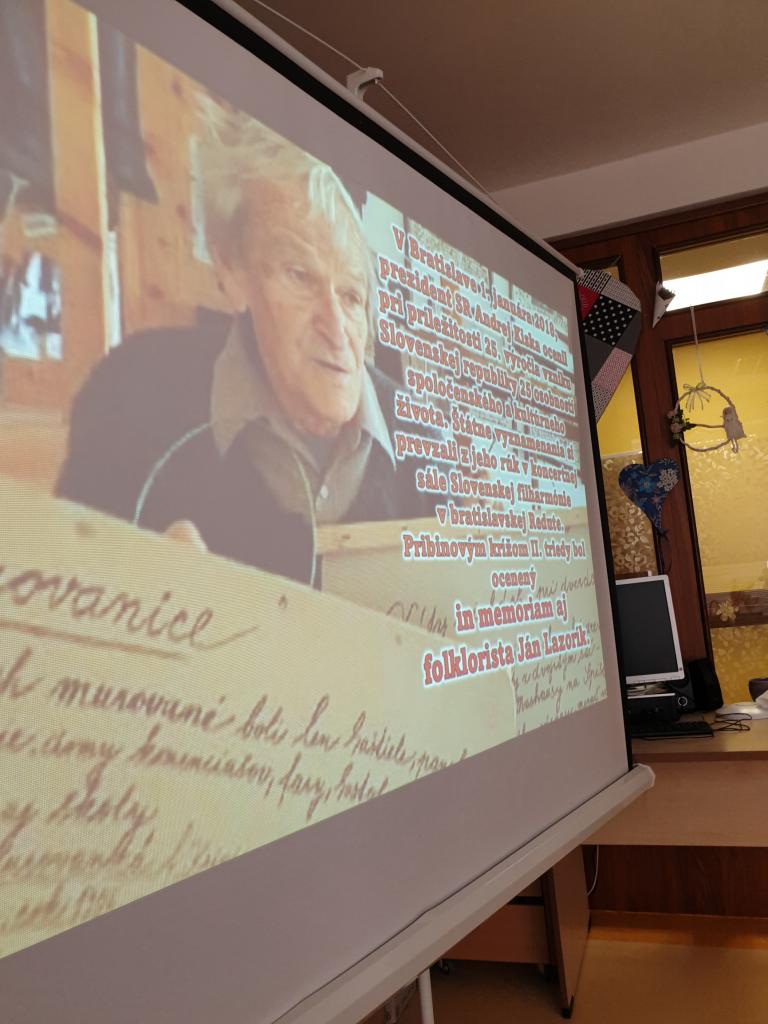 V Bratislave 1. januára 2018,
prezident SR Andrej Kiska ocenil
pri príležitosti 25. výročia vzniku
Slovenskej republiky 25 osobností
spoločenského a kultúrneho
života. Štátne vyznamenania si
prevzali z jeho rúk v koncertnej
sále Slovenskej filharmónie
v bratislavskej Redute.
Pribinovým krížom II. triedy bol
ocenený
in memoriam aj
folklorista Ján Lazorík.
ovanice
murované boli len kaštiele,
domy
školy